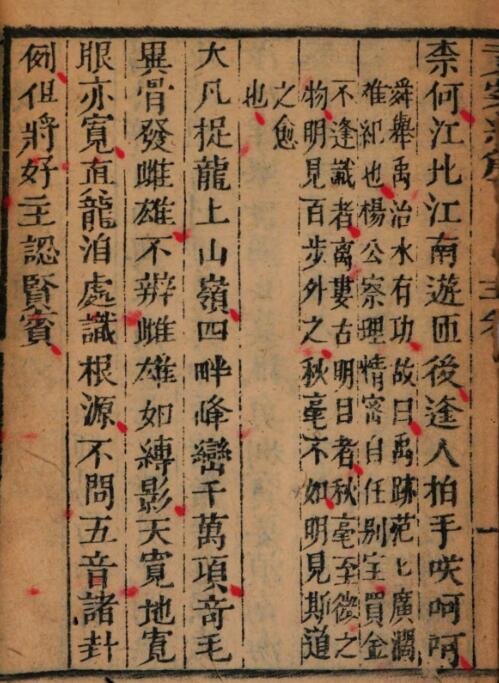 柰何江北江南遊匝後逢人拍手咲呵呵
舜舉禹治水有功故曰禹跡茫匕廣濶
雄紀也楊公察理情宻自任别宝買金
不逢識者離婁古明目者秋毫至微之
物明見百步外之秋毫不如明見斯道
之愈
也
大凡捉龍上山嶺四畔峰巒千萬項奇毛
異骨發雌雄不辨雌雄如縛影天寛地寛
眼亦寛直龍泊處識根源不問五音諸卦
例但將好主認賢賓